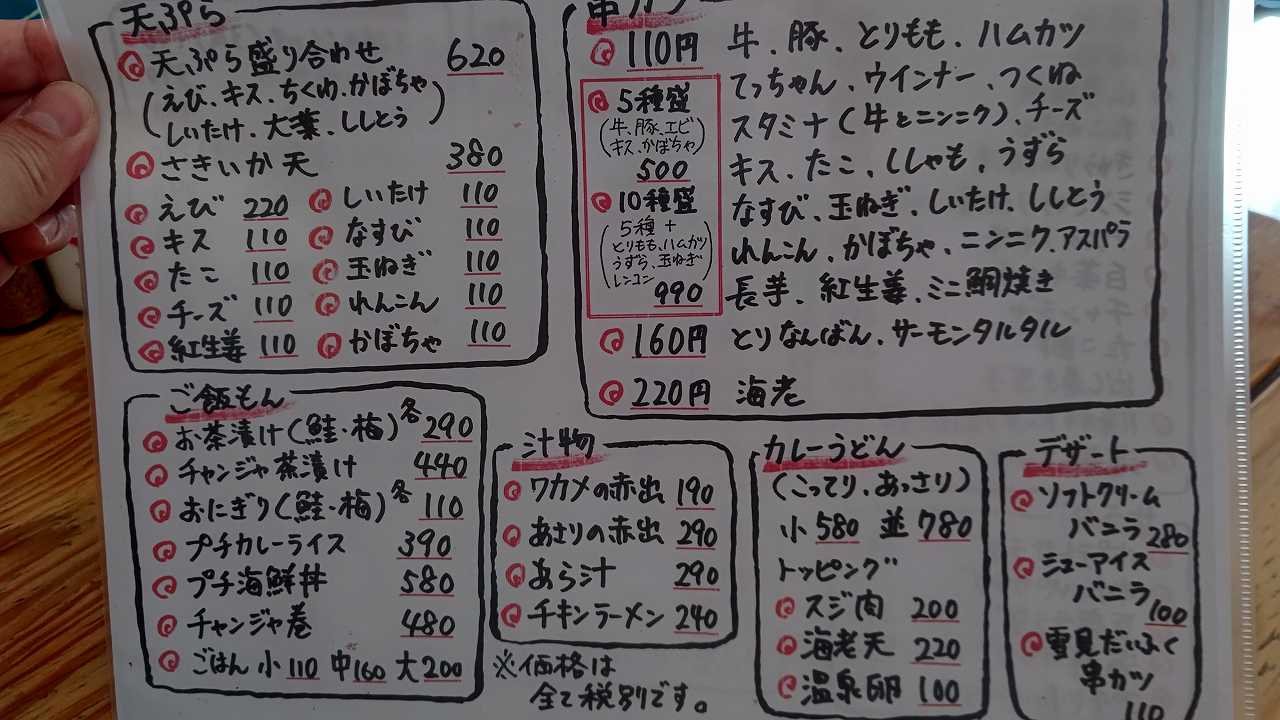 天ぷら
天ぷら盛り合わせ 620
(えび、キス、ちくわ、かぼちゃ
しいたけ、大葉、ししとう)
さきいか天 380
えび 220 しいたけ 110
キス 110 なすび 110
たこ 110 玉ねぎ 110
チーズ 110 れんこん 110
紅生姜 110 かぼちゃ 110
串カツ
110円 牛、豚、とりもも、ハムカツ
てっちゃん、ウインナー、つくね
スタミナ(牛とニンニク)、チーズ
キス、たこ、ししゃも、うずら
なすび、玉ねぎ、しいたけ、ししとう
れんこん、かぼちゃ、ニンニク、アスパラ
長芋、紅生姜、ミニ鯛焼き
5種盛
(牛、豚、エビ
キス、かぼちゃ)
500
10種盛
(5種+
とりもも、ハムカツ
うずら、玉ねぎ
レンコン)
990
160円 とりなんばん、サーモンタルタル
220円 海老
ご飯もん
お茶漬け(鮭・梅)各290
チャンジャ茶漬け 440
おにぎり(鮭・梅)各110
プチカレーライス 390
プチ海鮮丼 580
チャンジャ巻 480
ごはん 小110 中160 大200
汁物
ワカメの赤出 190
あさりの赤出 290
あら汁 290
チキンラーメン 240
※価格は
全て税別です。
カレーうどん
(こってり、あっさり)
小 580 並 780
トッピング
スジ肉 200
海老天 220
温泉卵 100
デザート
ソフトクリーム
バニラ 280
シューアイス
バニラ 100
雪見だいふく
串カツ
110